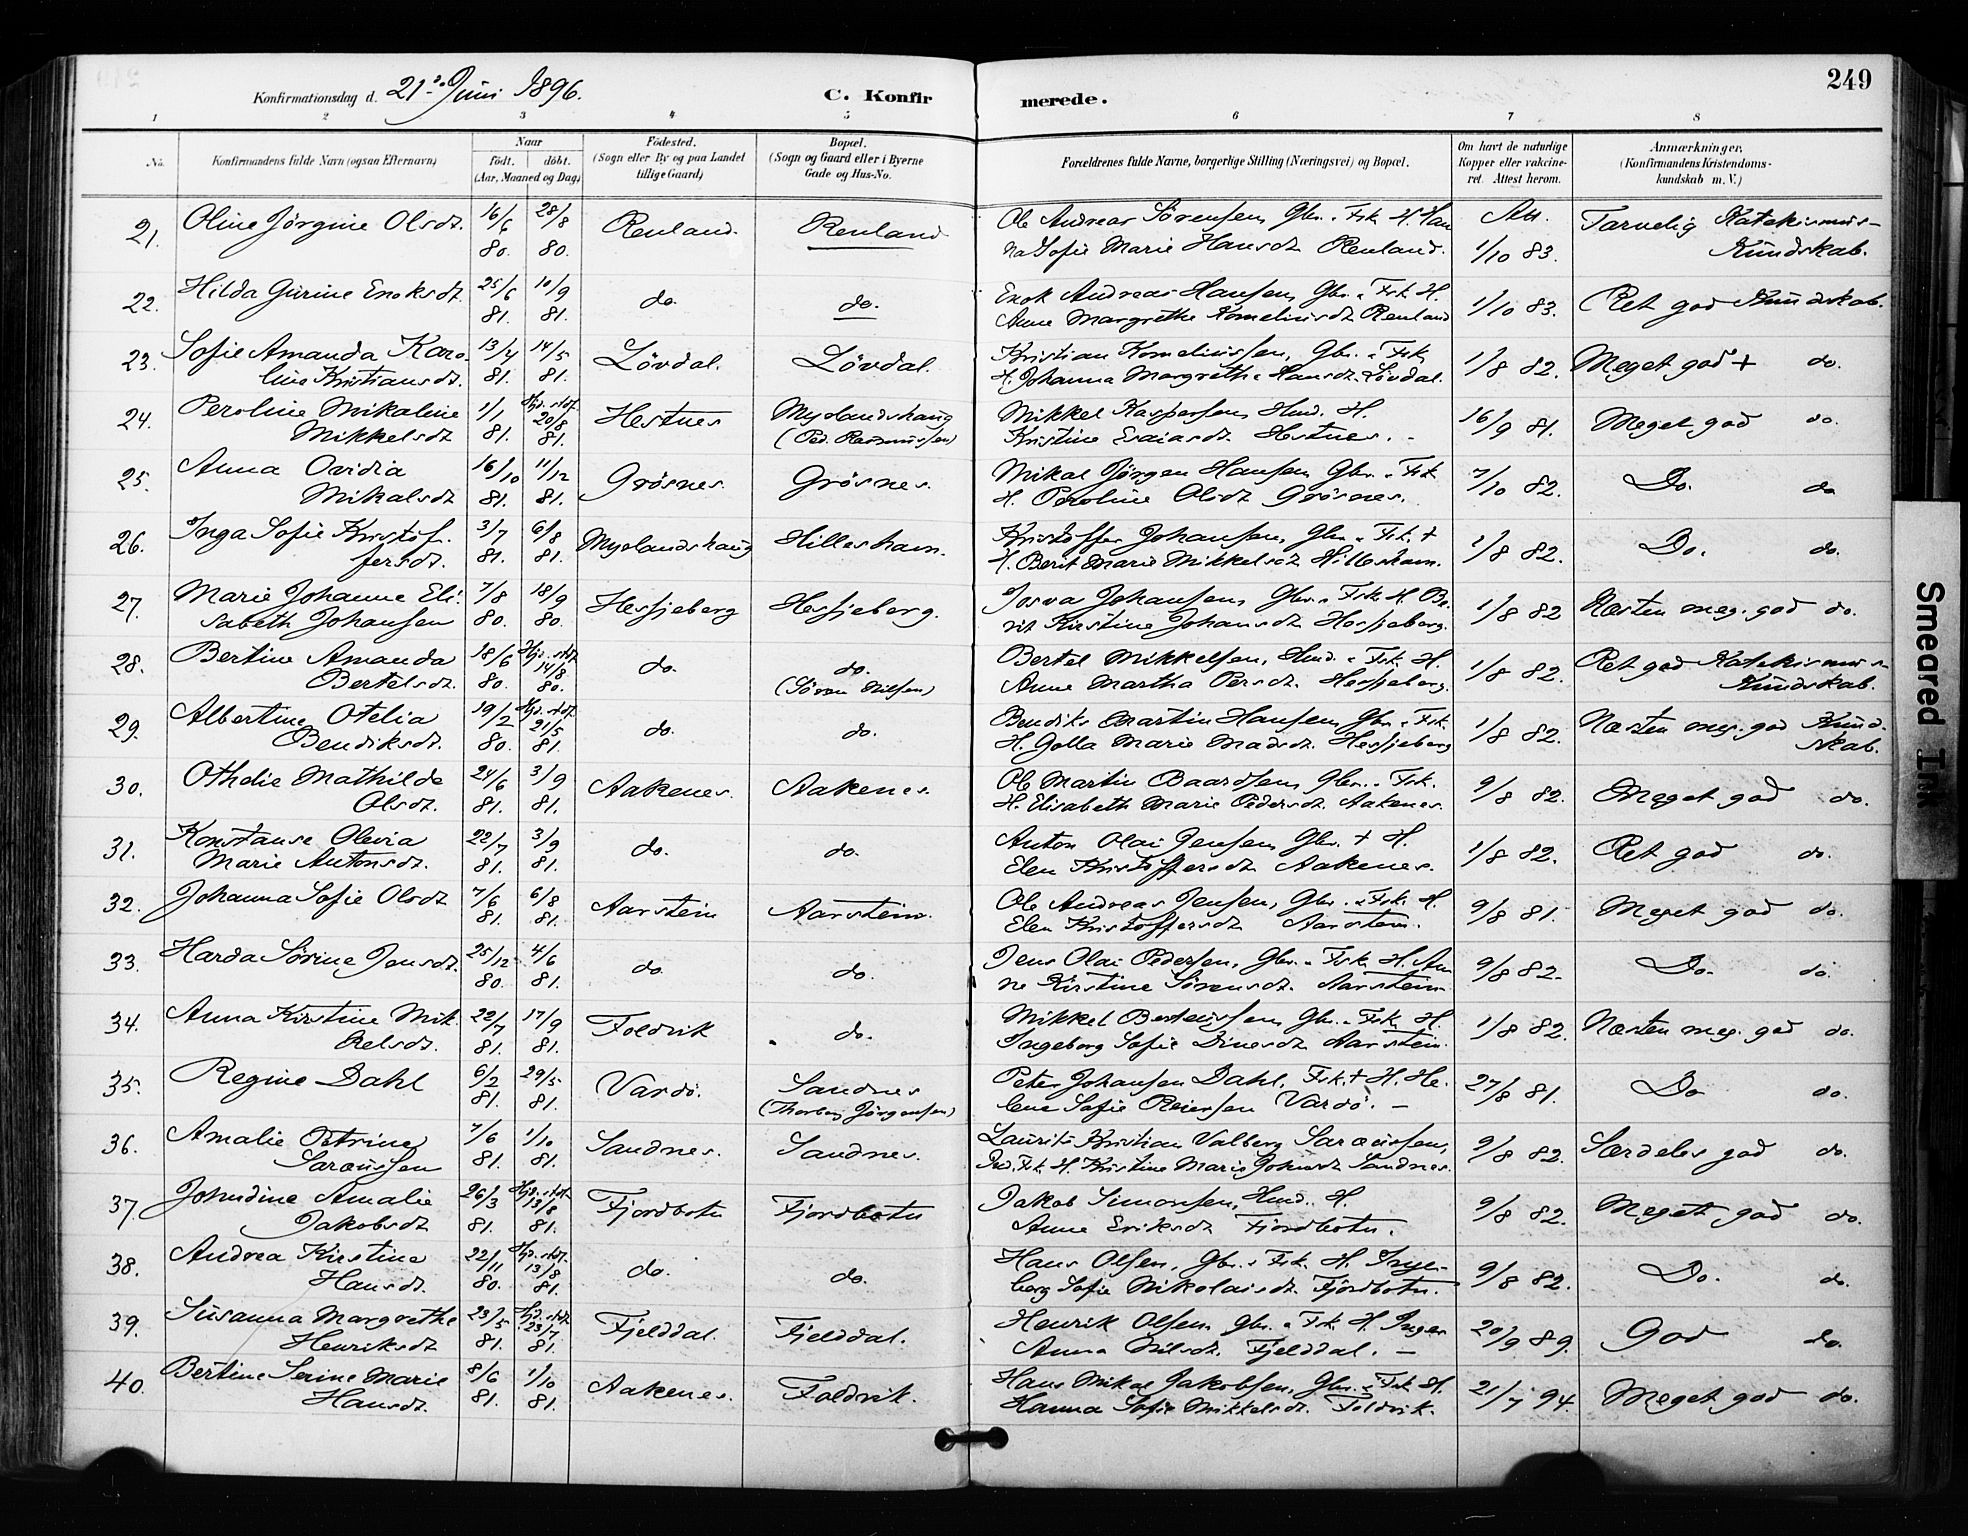 249
Konfirmationsdag d. 21de Juni 1896.
C. Konfirmerede.
1 2 3 4 5 6 7 8
No.
Konfirmandens fulde Navn (ogsaa Efternavn)
Naar
født. døbt.
(Aar, Maaned og Dag)
Fødested.
(Sogn eller By og paa Landet
tillige Gaard)
Bopæl.
(Sogn og Gaard eller i Byerne
Gade og Hus-No.
Forældrenes fulde Navne, borgerlige Stilling (Næringsvei) og Bopæl.
Om havt de naturlige
Kopper eller vakcine-
ret. Attest herom.
Anmærkninger.
(Konfirmandens Kristendoms-
kundskab m. V.)
21. Oline Jørgine Olsdt. 16/6 80. 28/8 80. Renland. Renland Ole Andreas Sørensen, Gbr. & Fsk. H. Han
na Sofie Marie Hansdt. Renland. Att. 1/10 83. Tarvelig Katekismus-
Kundskab.
22. Hilda Gurine Enoksdt. 25/6 81. 10/9 81. do. do. Enok Andreas Hansen, Gbr. & Fsk. H.
Anne Margrethe Korneliusdt. Renland 1/10 83. Ret god Kundskab.
23. Sofie Amanda Karo-
line Kristiansdt. 13/4 81. 14/5 81. Løvdal. Løvdal Kristian Korneliussen, Gbr. & Fsk.
H. Johanna Margrethe Hansdt. Løvdal. 1/8 82. Meget god + do.
24. Peroline Mikaline
Mikkelsdt 1/1 81. Hjd. døbt 20/8 81. Hestnes Myrlandshaug
(Ped. Rasmussen) Mikkel Kaspersen, Hmd. H.
Kristine Esaiasdt. Hestnes. - 16/9 81. Meget god do.
25. Anna Ovidia
Mikalsdt 16/10 81. 11/12 81. Grøsnes. Grøsnes. Mikal Jørgen Hansen, Gbr. & Fsk
H. Peroline Olsdt. Grøsnes. 7/10 82. Do. do
26. Inga Sofie Kristof-
fersdt. 3/7 81. 6/8 81. Myrlandshaug Hilleshavn. Kristoffer Johansen, Gbr. & Fsk. +
H. Berit Marie Mikkelsdt. Hilleshavn. 1/8 82. Do. do.
27. Marie Johanne Eli-
sabeth Johansen 7/8 80. 18/9 80. Hessjeberg Hessjeberg. Josva Johansen, Gbr. & Fsk. H. Be
rit Kirstine Johansdt. Hessjeberg. 1/8 82 Næsten meg. god do.
28. Bertine Amanda
Bertelsdt. 18/6 80. Hjd. døbt 14/8 80. do. do.
(Søren Nilsen) Bertel Mikkelsen, Hmd. & Fsk. H.
Anne Martha Persdt. Hessjeberg. 1/8 82. Ret god Katekismus-
Kundskab.
29. Albertine Otelia
Bendiksdt. 19/2 80. Hjd. døbt 21/5 81. do. do. Bendiks Martin Hansen, Gbr. & Fsk.
H. Golla Marie Madsdt. Hessjeberg 1/8 82. Næsten meg. god Kund-
skab.
30. Othelie Mathilde
Olsdt. 24/6 81. 3/9 81. Aakenes. Aakenes. Ole Martin Baardsen, Gbr. & Fsk.
H. Elisabeth Marie Pedersdt. Aakenes. 9/8 82. Meget god do.
31. Konstanse Olevia
Marie Antonsdt. 22/7 81. 3/9 81. do. do. Anton Olai Jensen, Gbr. + H.
Elen Kristoffersdt. Aakenes. 1/8 82. Ret god do.
32. Johanna Sofie Olsdt 7/6 81. 6/8 81. Aarstein Aarstein. Ole Andreas Jensen, Gbr. & Fsk. H.
Elen Kristoffersdt. Aarstein. 9/8 81. Meget god do.
33. Harda Sørine Jensdt. 25/12 80. 4/6 81. do. do. Jens Olai Pedersen, Gbr. & Fsk. H. An
ne Kirstine Sørensdt. Aarstein 9/8 82. Do. do.
34. Anna Kirstine Mik-
kelsdt. 22/7 81. 17/9 81. Foldvik do. Mikkel Berteussen, Gbr. & Fsk. H.
Ingeborg Sofie Dinesdt. Aarstein. 1/8 82. Næsten meg. god do.
35. Regine Dahl 6/2 81. 29/5 81. Vardø. Sandnes
(Thorberg Jørgensen) Peter Johansen Dahl, Fsk. + H. He-
lene Sofie Reiersen Vardø. - 27/8 81. Do do.
36. Amalie Petrine
Saraussen 7/6 81. 1/10 81. Sandnes. Sandnes. Laurits Kristian Valberg Saraussen,
Ind. Fsk. H. Kristine Marie Johnsdt. Sandnes. 9/8 82. Særdeles god do.
37. Johndine Amalie
Jakobsdt 26/3 81. Hjd. døbt 13/8 81. Fjordbotn Fjordbotn Jakob Simonsen, Hmd. H.
Anne Eriksdt. Fjordbotn. 9/8 82. Meget god do.
38. Andrea Kirstine
Hansdt. 22/11 80. Hjd. døbt 13/8 81. do. do. Hans Olsen, Gbr. & Fsk. H. Inge-
borg Sofie Nikolaisdt. Fjordbotn. 9/8 82. Do. do.
39. Susanna Margrethe
Henriksdt 23/5 81. Hjd. døbt 23/7 81. Fjelddal. Fjelddal. Henrik Olsen, Gbr. & Fsk. H. Inger
Anna Nilsdt. Fjelddal. - 20/9 89. God do.
40. Bertine Serine Marie
Hansdt. 8/6 81. 1/10 81. Aakenes. Foldvik. Hans Mikal Jakobsen, Gbr. & Fsk. H.
Hanna Sofie Mikkelsdt. Foldvik. 21/7 94. Meget god do.
Smeared Ink